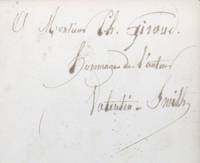 A Monsieur Ch. Giroud.
Hommage de l'auteur
Valentin-Smith